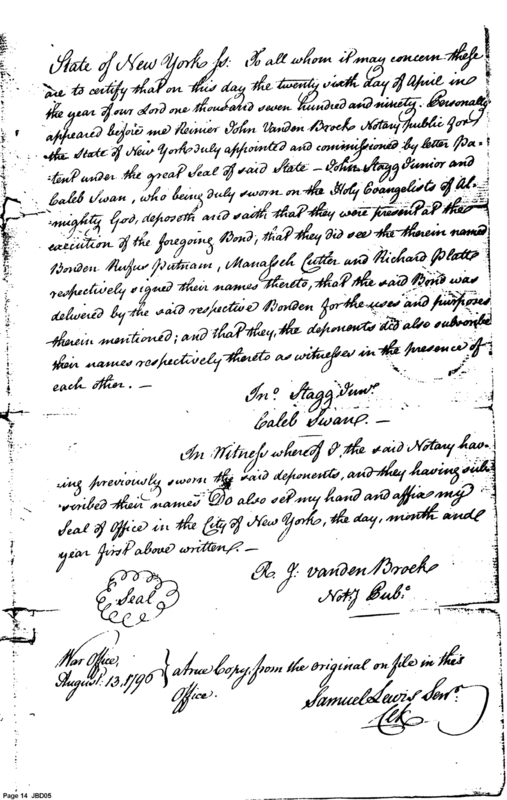 State of New York ss: To all whom it may concern these
are to certify that on this day the twenty sixth day of April in
the year of our Lord one thousand seven hundred and ninety. Personally
appeared before me Reinier John Vanden Broek Notary public for
the State of New York duly appointed and commissioned by letter Pa-
tent under the great Seal of said State - John Stagg Junior and
Caleb Swan, who being duly sworn on the Holy Evangelists of Al-
mighty God, deposeth and saith, that they were present at the
execution of the foregoing Bond; that they did see the therein named
Bonden Rufus Putnam, Manasseh Cutler and Richard Platt
respectively signed their names thereto, that the said Bond was
delivered by the said respective Bonden for the uses and purposes
therein mentioned; and that they, the deponents did also subscribe
their names respectively thereto as witnesses in the presence of
each other. -
Jno. Stagg Junr.
Caleb Swan. -
In Witness whereof I, the said Notary hav-
ing previously sworn the said deponents, and they having sub-
scribed their names Do also set my hand and affix my
Seal of Office in the City of New York, the day, month and
year first above written. -
R. J. vanden Broek
Noty Pub.
Seal
War Office,
August. 13. 1796
} a true Copy, from the original on file in this
Office.
Samuel Lewis Senr.
Clk
Page 14 JBD05